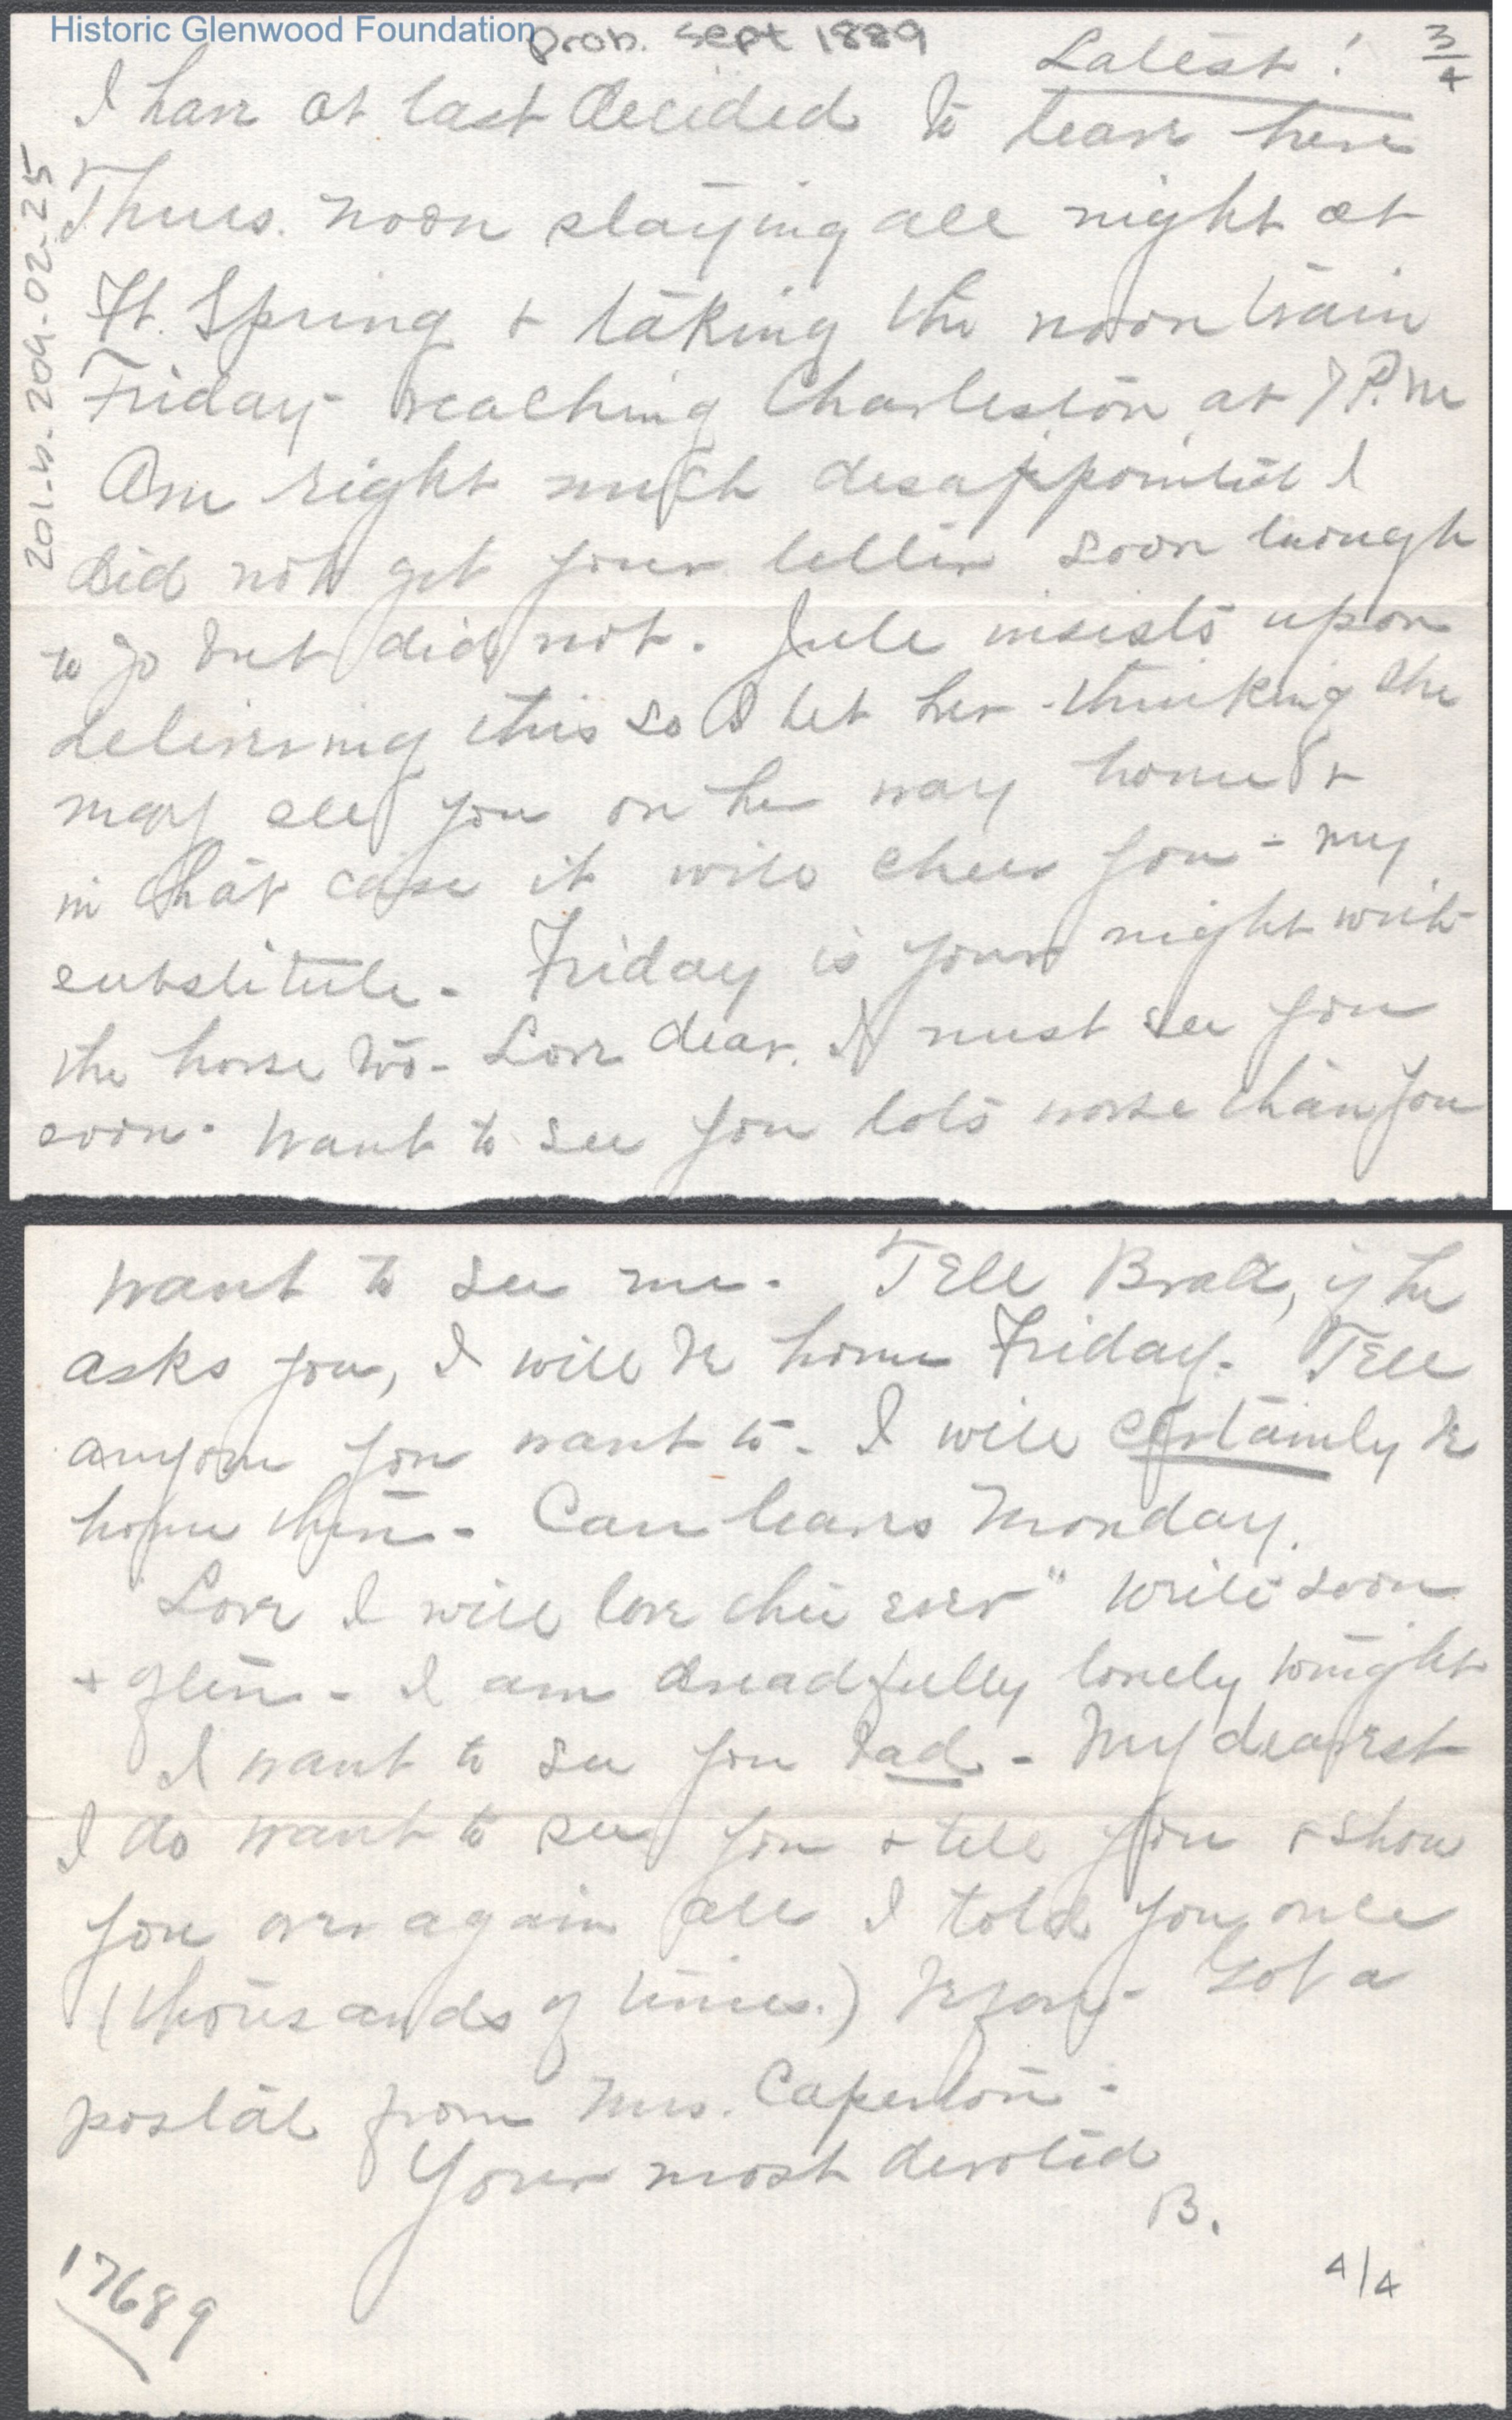 Historic Glenwood Foundation
Prob. Sept 1889
Latest! 3/4
I have at last decided to leave here
Thurs. noon staying all night at
Ft. Spring + taking the noon train
Friday - reaching Charleston at 7 P.M
Am right much disappointed I
did not get your letter soon enough
to go but did not. Jule insists upon
delivering this so I let her - thinking she
may see you on her way home &
in that case it will cheer you - my
substitute - Friday is your night with
the horse too - Love dear. I must see you
soon. Want to see you lots worse than you
201.b.209.02.25
want to see me. Tell Brad, if he
asks you, I will be home Friday. Tell
anyone you want to - I will certainly be
home then - Can leaves Monday.
"Love I will love thee ever" Write soon
+ often - I am dreadfully lonely tonight
I want to see you bad - My dearest
I do want to see you + tell you + show
you over again all I told you once
(thousands of times.) before - Got a
postal from Mrs. Caperton -
Your most devoted
B.
4/4
17689